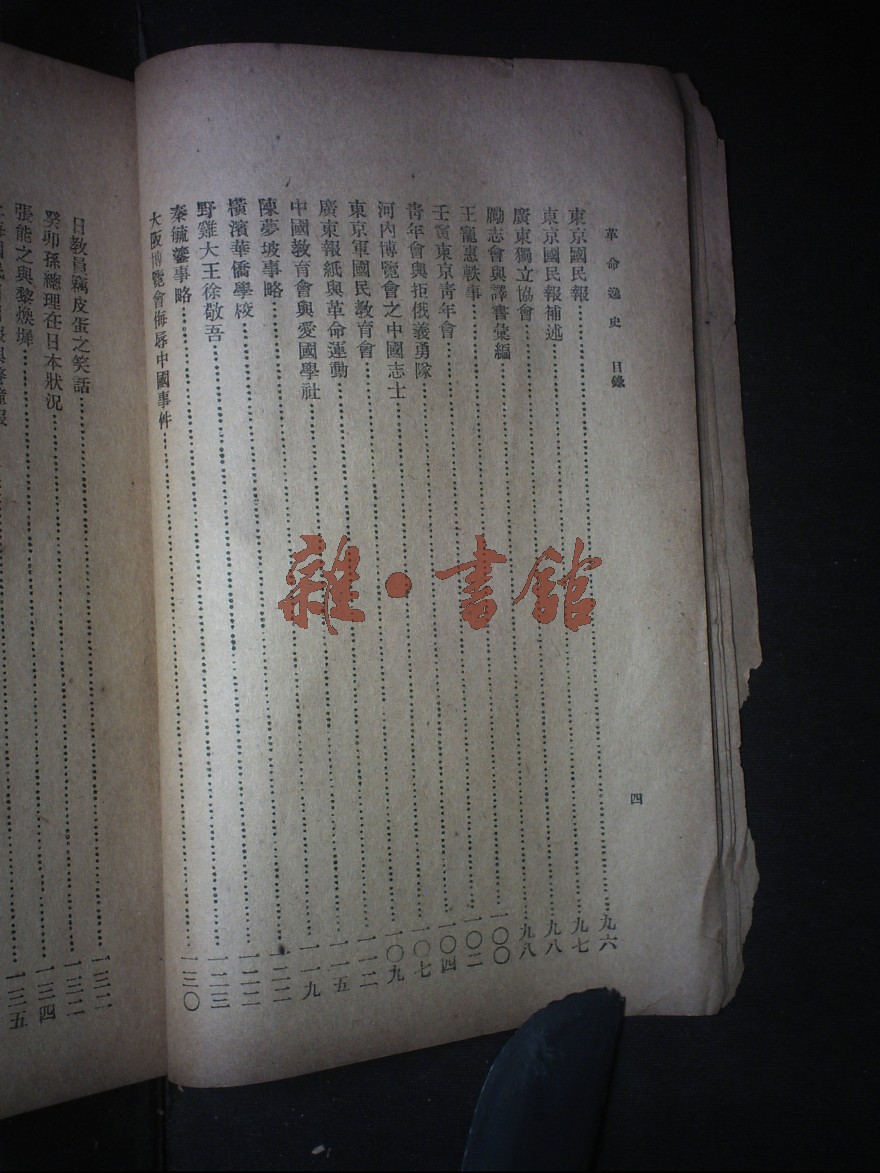 革命逸史 目錄 四
東京國民報……九六
東京國民報補述……九七
廣東獨立協會……九八
勵志會與譯書彙編……九八
王寵惠軼事……一〇〇
壬寅東京青年會……一〇二
青年會與拒俄義勇隊……一〇四
河內博覽會之中國志士……一〇七
東京軍國民教育會……一〇九
廣東報紙與革命運動……一一二
中國教育會與愛國學社……一一五
陳夢坡事略……一一九
橫濱華僑學校……一二二
野雞大王徐敬吾……一二二
秦毓鎏事略……一二三
大阪博覽會侮辱中國事件……一三〇
日教員竊皮蛋之笑話……一三二
癸卯孫總理在日本狀況……一三二
張能之與黎煥墀……一三四
……一三五
雜·書館